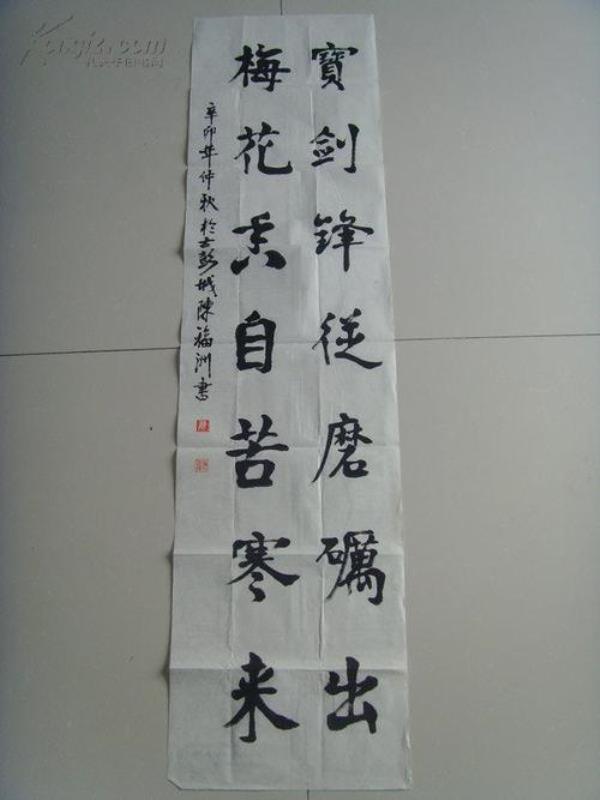 寶劍鋒從磨礪出
梅花香自苦寒来
辛卯年仲秋於古彭城陳福洲書